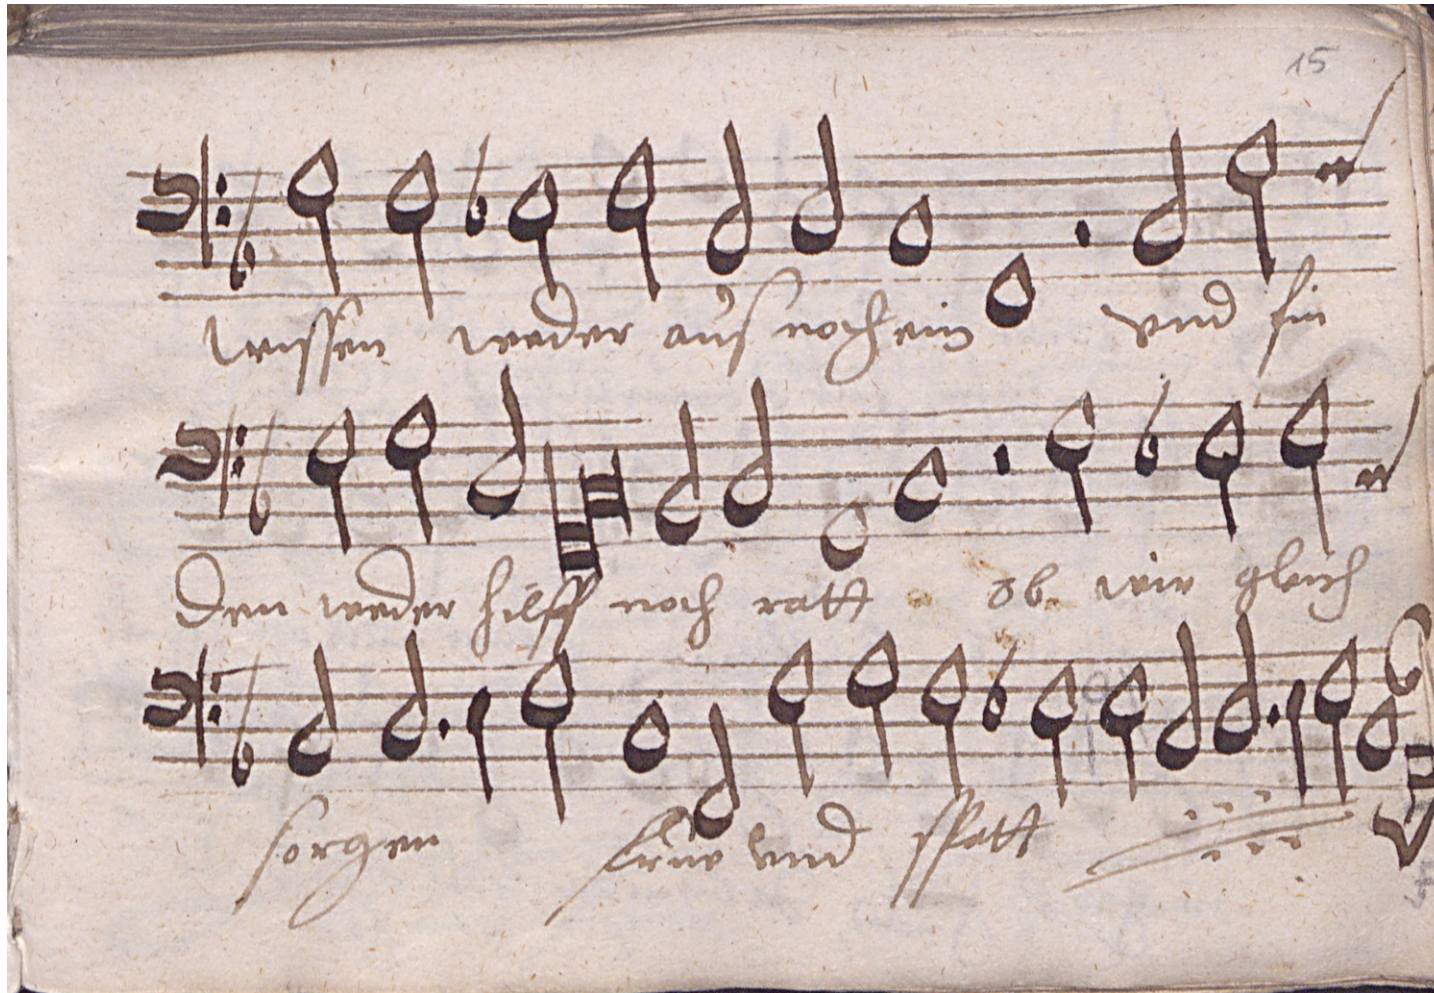 15
wissen weder auß noch ein vnd fin
den weder hilff noch ratt ob wir gleich
sorgen frue vnd spatt